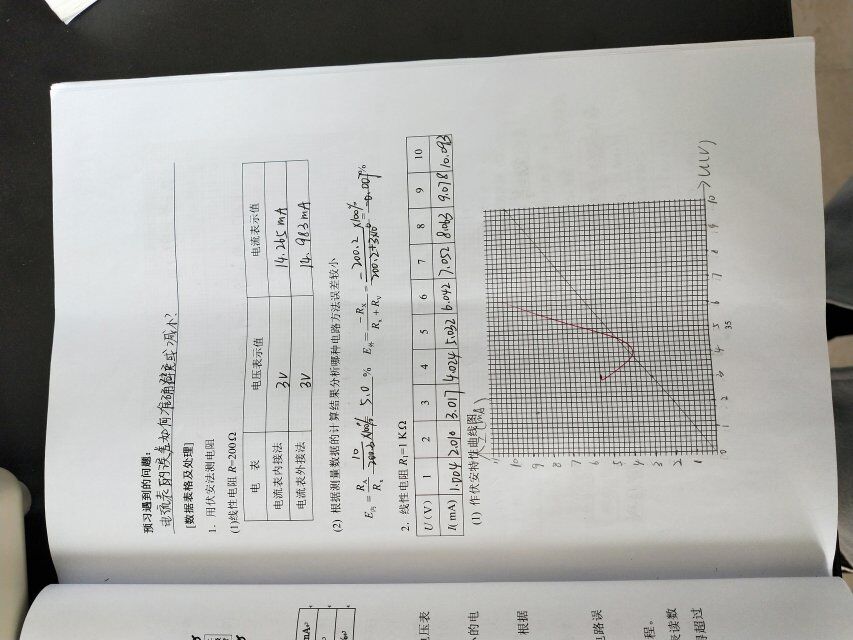 预习遇到的问题:
电流表的误差如何准确避免或减小?
[数据表格及处理]
1. 用伏安法测电阻
(1)线性电阻 R=200Ω
电 表 电压表示值 电流表示值
电流表内接法 3V 14.265mA
电流表外接法 3V 14.983mA
(2) 根据测量数据的计算结果分析哪种电路方法误差较小
E内 = RA/Rx = 10/200.2 ×100% 5.0 % E外 = -Rx/(Rx+Rv) = -200.2 ×100%
2. 线性电阻 R1=1 KΩ
U(V) 1 2 3 4 5 6 7 8 9 10
I(mA) 1.004 2.010 3.017 4.024 5.032 6.042 7.052 8.063 9.078 10.093
(1) 作伏安特性曲线图
I(mA)
10
9
8
7
6
5
4
3
2
1
0 1 2 3 4 5 6 7 8 9 10 U(V)
35
电压表
的电
根据
电路误
程。
读数
得超过